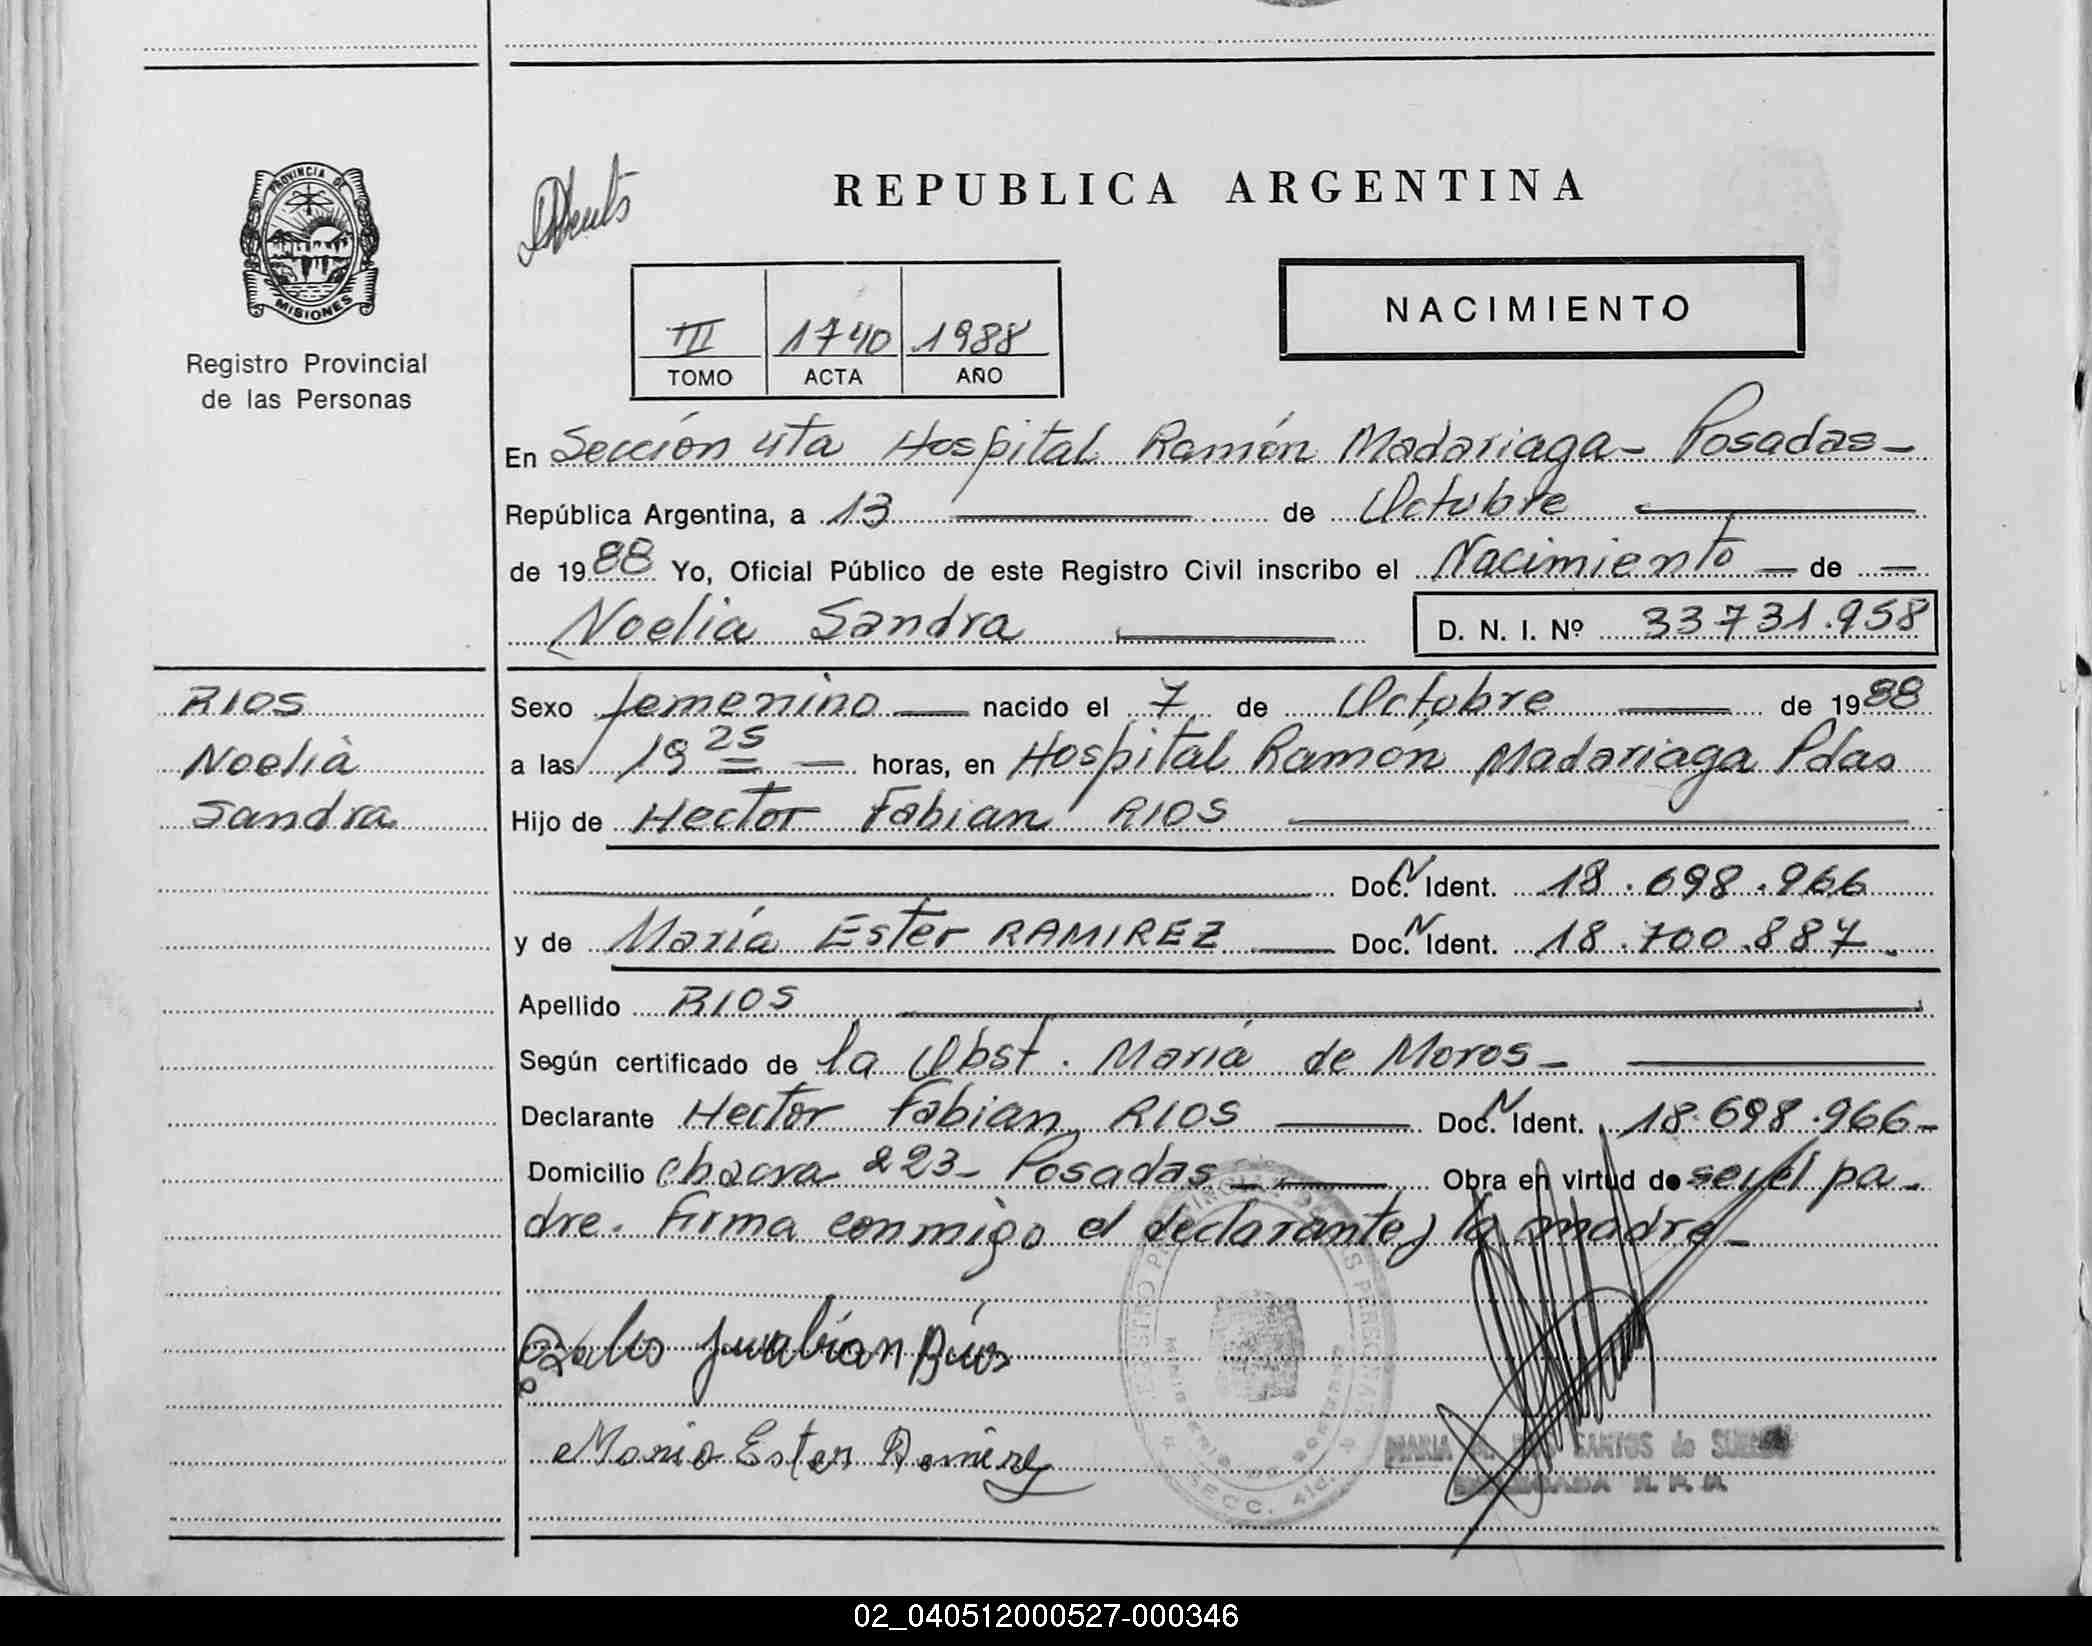 PROVINCIA DE
MISIONES
Registro Provincial
de las Personas
REPUBLICA ARGENTINA
NACIMIENTO
III 1740 1988
TOMO ACTA AÑO
En Sección 4ta Hospital Ramón Madariaga- Posadas-
República Argentina, a 13 de Octubre
de 1988 Yo, Oficial Público de este Registro Civil inscribo el Nacimiento de
Noelia Sandra D. N. I. Nº 33731.958
RIOS
Noelia
Sandra
Sexo femenino nacido el 7 de Octubre de 1988
a las 19 25 horas, en Hospital Ramón Madariaga Pdas
Hijo de Hector Fabian RIOS
Doc. N Ident. 18.698.966
y de María Ester RAMIREZ Doc. N Ident. 18.700.887.
Apellido RIOS
Según certificado de la Obst. María de Moros-
Declarante Hector Fabian RIOS Doc. N Ident. 18.698.966-
Domicilio Chacra 223- Posadas Obra en virtud de ser el pa-
dre. Firma conmigo el declarante y la madre-
Rios
Maria Ester Ramirez
MARIA SANTOS de
SECC. 4ta.
02_040512000527-000346